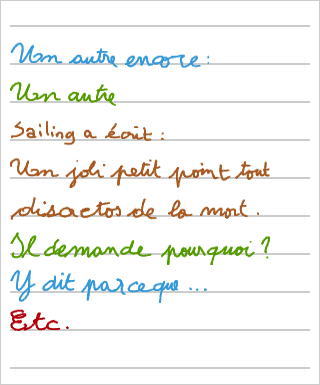 Un autre encore :
Un autre
Sailing a écrit :
Un joli petit point tout
disactos de la mort .
Il demande pourquoi ?
Y dit parceque ...
Etc .